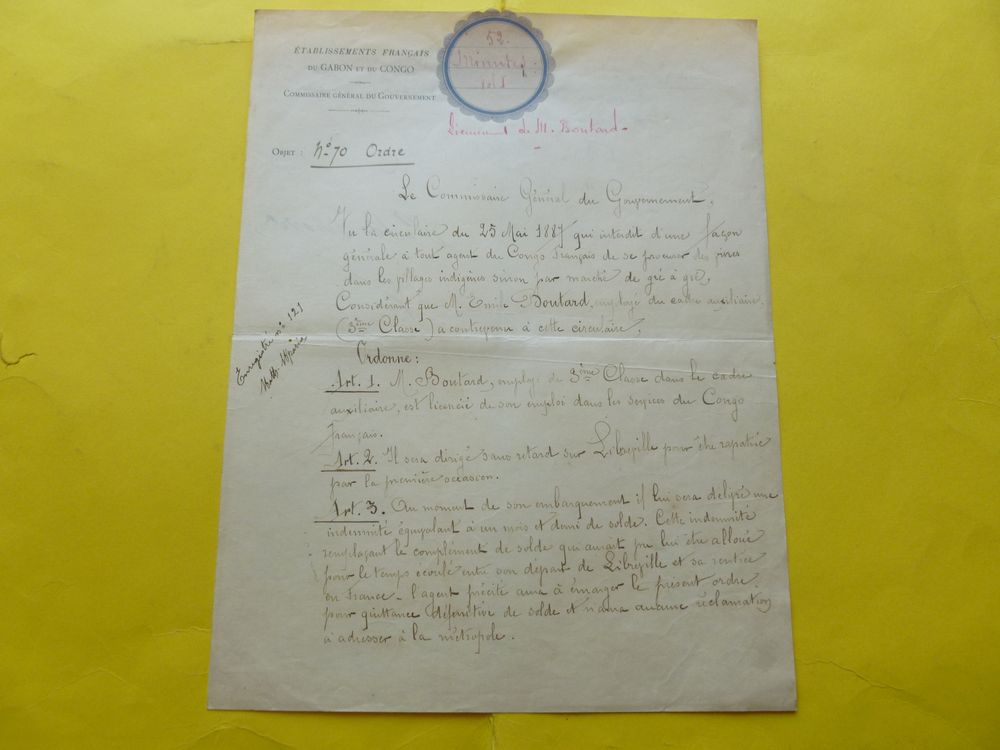 52.
Minutes
ÉTABLISSEMENTS FRANÇAIS
DU GABON ET DU CONGO
COMMISSAIRE GÉNÉRAL DU GOUVERNEMENT
de M. Boutard.
OBJET : N° 70 Ordre
Le Commissaire Général du Gouvernement,
Vu la circulaire du 25 Mai 1887 qui interdit d'une façon
générale à tout agent du Congo français de se procurer des vivres
dans les villages indigènes sinon par marché de gré à gré,
Considérant que M. Emile Boutard, employé du cadre auxiliaire
(3ème Classe) a contrevenu à cette circulaire,
Enregistré n° 121
Ordonne :
Art. 1. M. Boutard, employé de 3ème Classe dans le cadre
auxiliaire, est licencié de son emploi dans les services du Congo
français.
Art. 2. Il sera dirigé sans retard sur Libreville pour être rapatrié
par la première occasion.
Art. 3. Au moment de son embarquement il lui sera délivré une
indemnité équivalant à un mois et demi de solde. Cette indemnité
remplaçant le complément de solde qui aurait pu lui être alloué
pour le temps écoulé entre son départ de Libreville et sa rentrée
en France - l'agent précité aura à émarger le présent ordre
pour quittance définitive de solde et n'aura aucune réclamation
à adresser à la métropole.